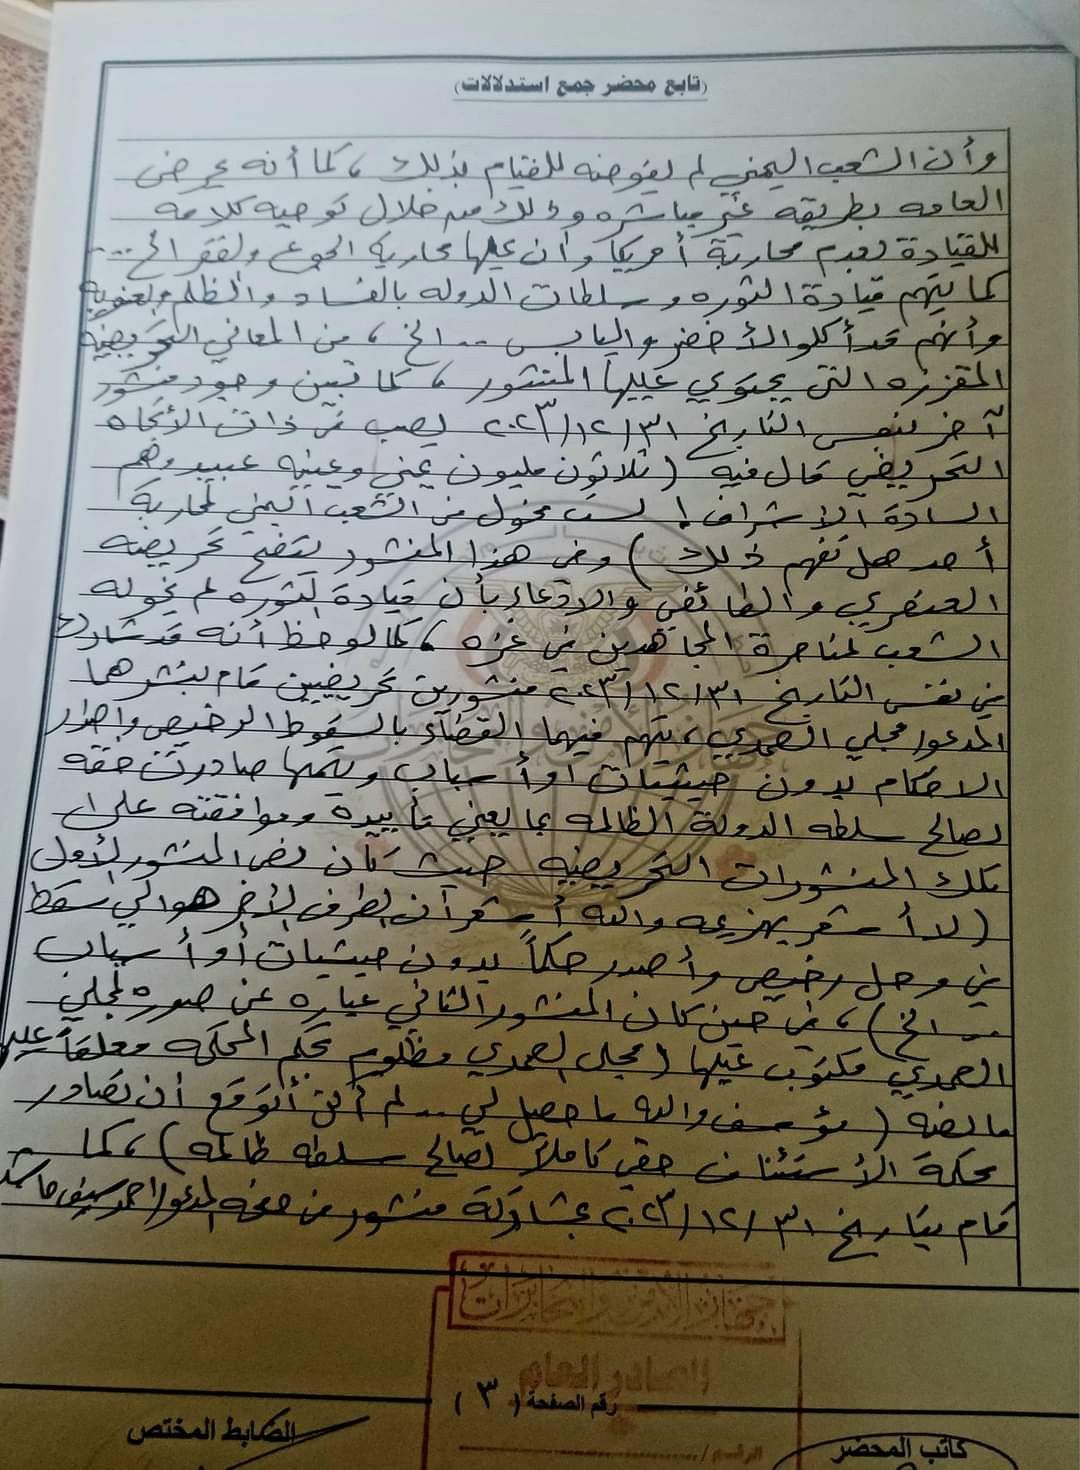 (تابع محضر جمع استدلالات)
وأن الشعب اليمني لم يفوضه للقيام بذلك ، كما أنه يحرض
العامه بطريقه غير مباشره وذلك من خلال توجيه كلامه
للقيادة لعدم محاربة أمريكا وأن عليها محاربة الجوع والفقر الخ ...
كما يتهم قيادة الثوره وسلطات الدوله بالفساد والظلم والعنجهية
وأنهم قد أكلوا الأخضر واليابس .. الخ ، من المعاني التحريضيه
المقززه التي يحتوي عليها المنشور ، كما تبين وجود منشور
آخر بنفس التاريخ ٢٠٢٣/١٢/٣١ يصب في ذات الأتجاه
التحريضي قال فيه (ثلاثون مليون يمني ويمنيه عبيد وهم
السادة الأشراف! لست مخول من الشعب اليمني لمحاربة
أحد هل تفهم ذلك) وفي هذا المنشور يتضح تحريضه
العنصري والطائفي والادعاء بأن قيادة الثوره لم يخوله
الشعب لمناصرة المجاهدين في غزه ، كما لوحظ أنه قد شارك
في نفس التاريخ ٢٠٢٣/١٢/٣١ منشورين تحريضيين قام بنشرهما
المدعو/ مجلي الصمدي ، يتهم فيهما القضاء بالسقوط الرخيص واصدار
الاحكام بدون حيثيات او أسباب ويتهمها صادرت حقه
لصالح سلطه الدولة الظالمه بما يعني تأييده وموافقته على
تلك المنشورات التحريضيه حيث كان نص المنشور الأول
(لا أشعر بهزيمه والله أشعر أن الطرف الأخر هو الي سقط
في وحل رخيص وأصدر حكماً بدون حيثيات أو أسباب
... الخ) ، في حين كان المنشور الثاني عباره عن صوره لمجلي
الصمدي مكتوب عليها (مجلي الصمدي مظلوم بحكم المحكمه معلقاً عليه
مالفظه (مؤسف والله ما حصل لي .. لم أكن أتوقع أن تصادر
محكمة الأستئناف حقي كاملاً لصالح سلطه ظالمه) ، كما
قام بتاريخ ٢٠٢٣/١٢/٣١ بمشاركة منشور من صفحه المدعو/ احمد سيف حاشد
جهاز الأمن والمخابرات
الصادر العام
رقم الصفحة (٣)
الرقم/
الضابط المختص
كاتب المحضر